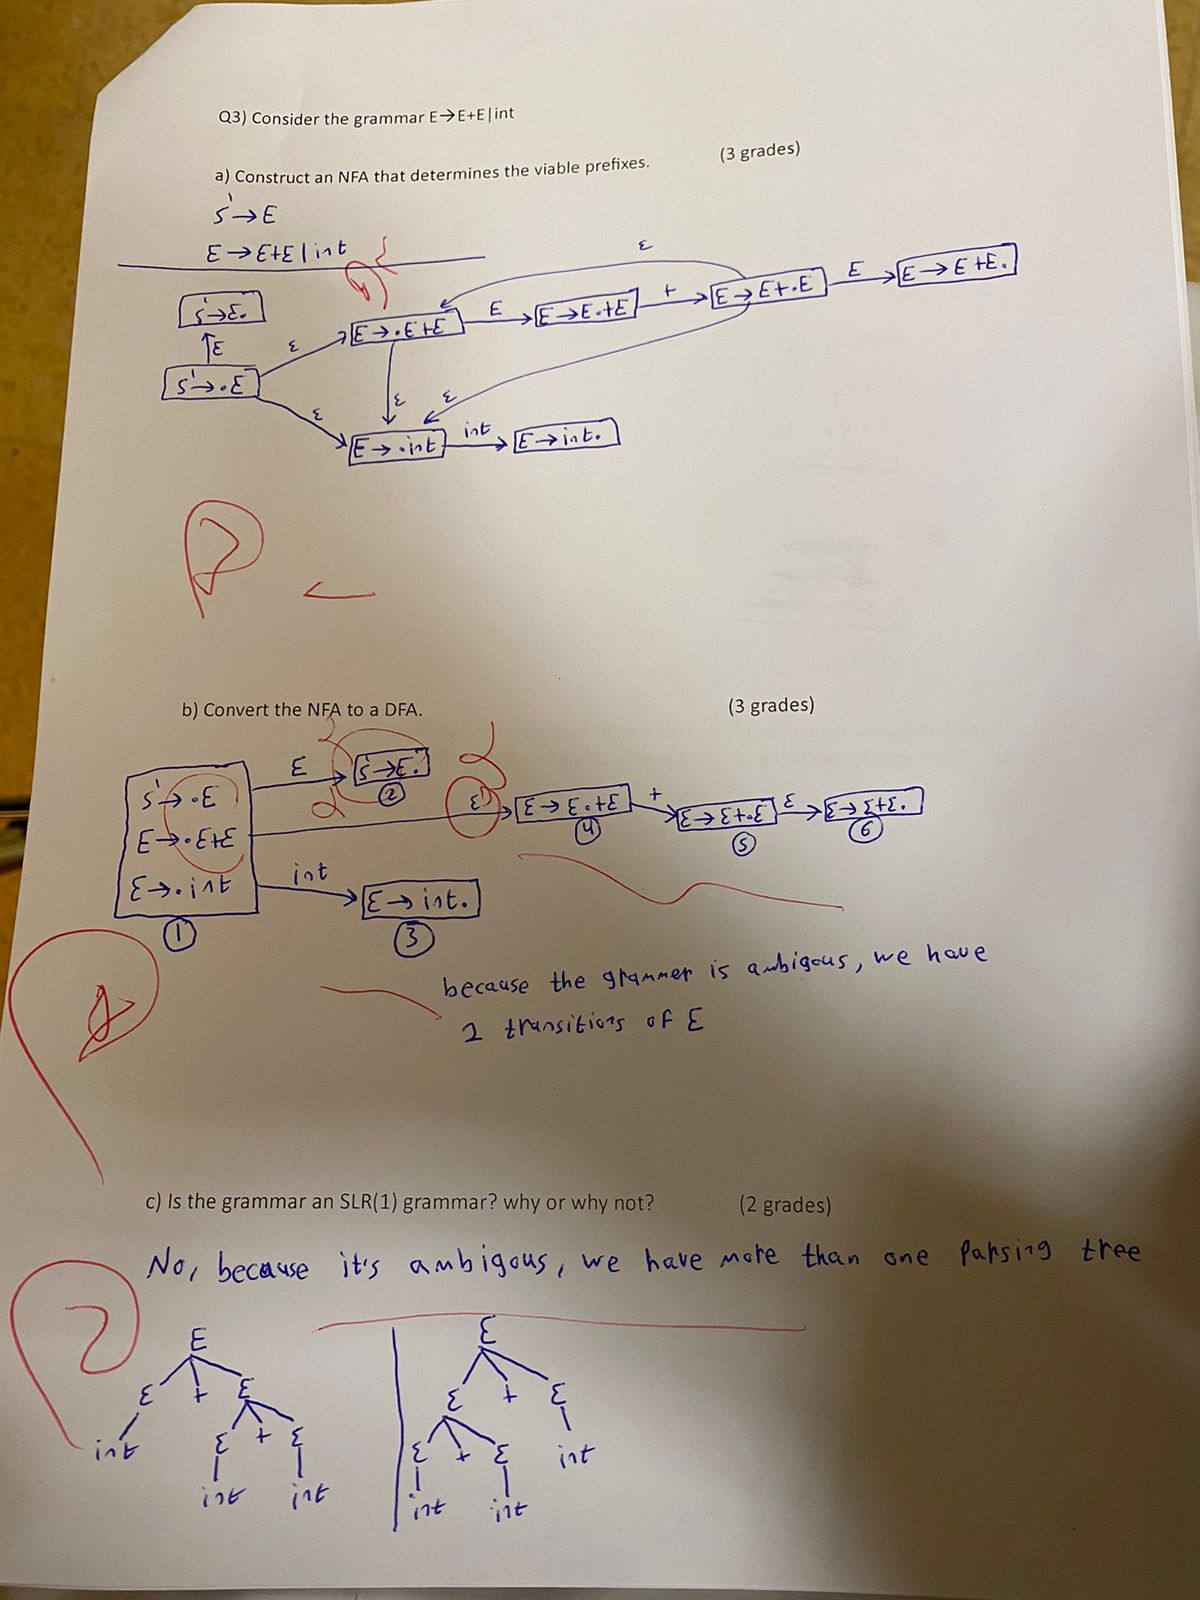 Q3) Consider the grammar E→E+E|int
a) Construct an NFA that determines the viable prefixes. (3 grades)
S'→E
E→E+E|int
S'→E.
E
S'→.E
ε
ε
E→.E+E
E
E→E.+E
+
E→E+.E
E
E→E+E.
ε
ε
ε
E→.int
int
E→int.
b) Convert the NFA to a DFA. (3 grades)
S'→.E
E→.E+E
E→.int
1
E
S'→E.
2
E
E→E.+E
4
+
E→E+.E
5
E
E→E+E.
6
int
E→int.
3
because the grammer is ambigous, we have
2 transitions of E
c) Is the grammar an SLR(1) grammar? why or why not? (2 grades)
No, because it's ambigous, we have more than one Parsing tree
E E
E + E E + E
int E + E E + E int
int int int int